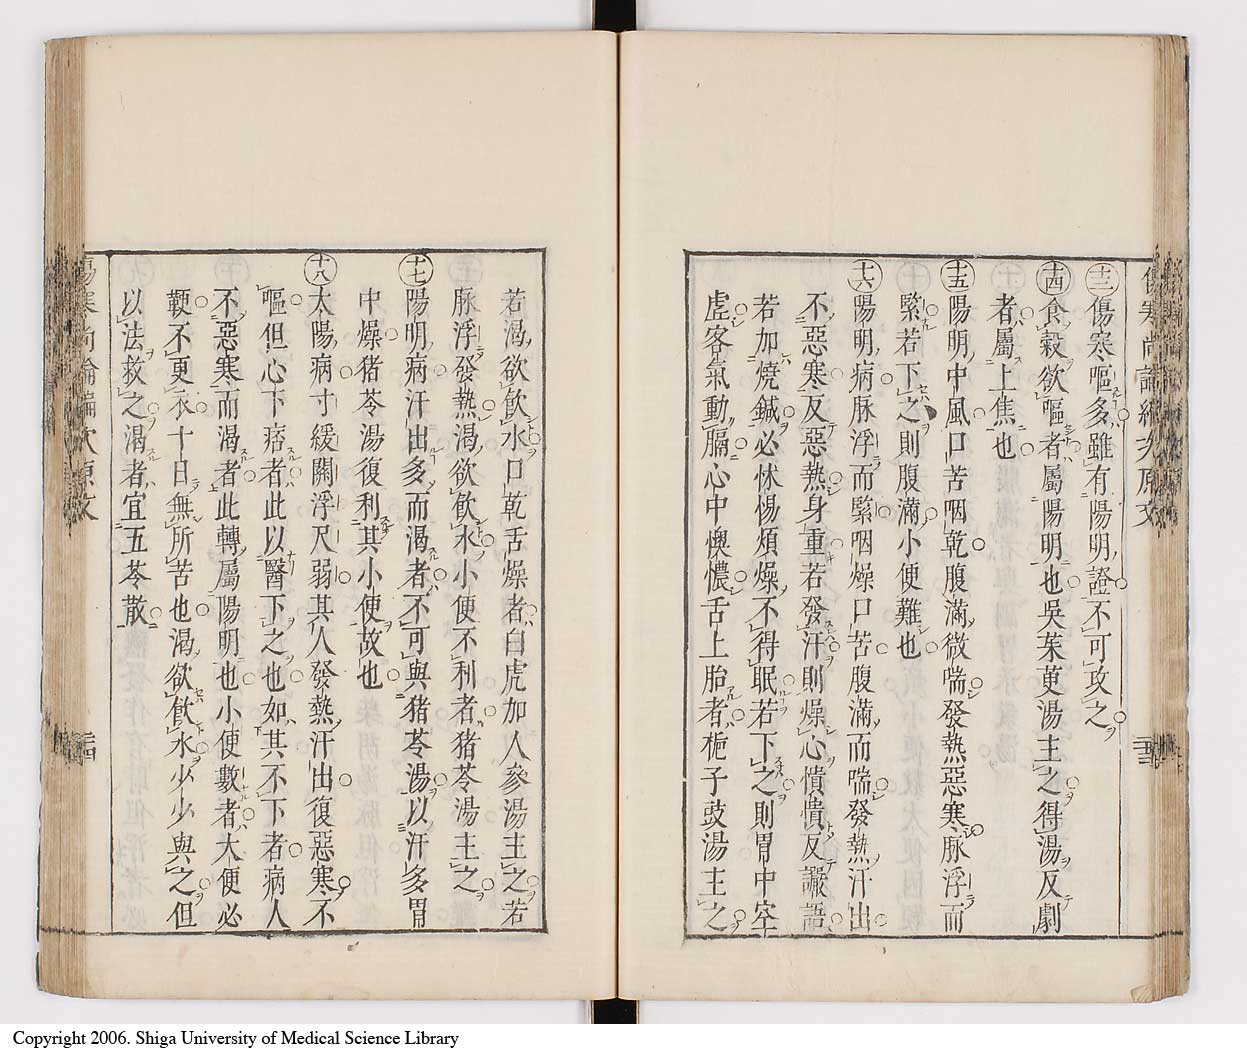 十三傷寒嘔多雖有陽明證不可攻之
十四食穀欲嘔者屬陽明也吳茱萸湯主之得湯反劇
者屬上焦也
十五陽明中風口苦咽乾腹滿微喘發熱惡寒脉浮而
緊若下之則腹滿小便難也
十六陽明病脉浮而緊咽燥口苦腹滿而喘發熱汗出
不惡寒反惡熱身重若發汗則燥心憒憒反讝語
若加燒鍼必怵惕煩燥不得眠若下之則胃中空
虛客氣動膈心中懊憹舌上胎者梔子豉湯主之
若渴欲飲水口乾舌燥者白虎加人參湯主之若
脉浮發熱渴欲飲水小便不利者猪苓湯主之
十七陽明病汗出多而渴者不可與猪苓湯以汗多胃
中燥猪苓湯復利其小便故也
十八太陽病寸緩關浮尺弱其人發熱汗出復惡寒不
嘔但心下痞者此以醫下之也如其不下者病人
不惡寒而渴者此轉屬陽明也小便數者大便必
鞕不更衣十日無所苦也渴欲飲水少少與之但
以法救之渴者宜五苓散
Copyright 2006. Shiga University of Medical Science Library